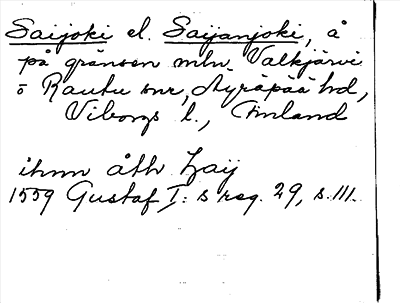 Saijoki el. Saijanjoki, å
på gränsen mln. Valkjärvi
o Rautu snr, Äyräpää hd,
Viborgs l., Finland
ihnn åth Zaij
1559 Gustaf I:s reg. 29, s. 111.